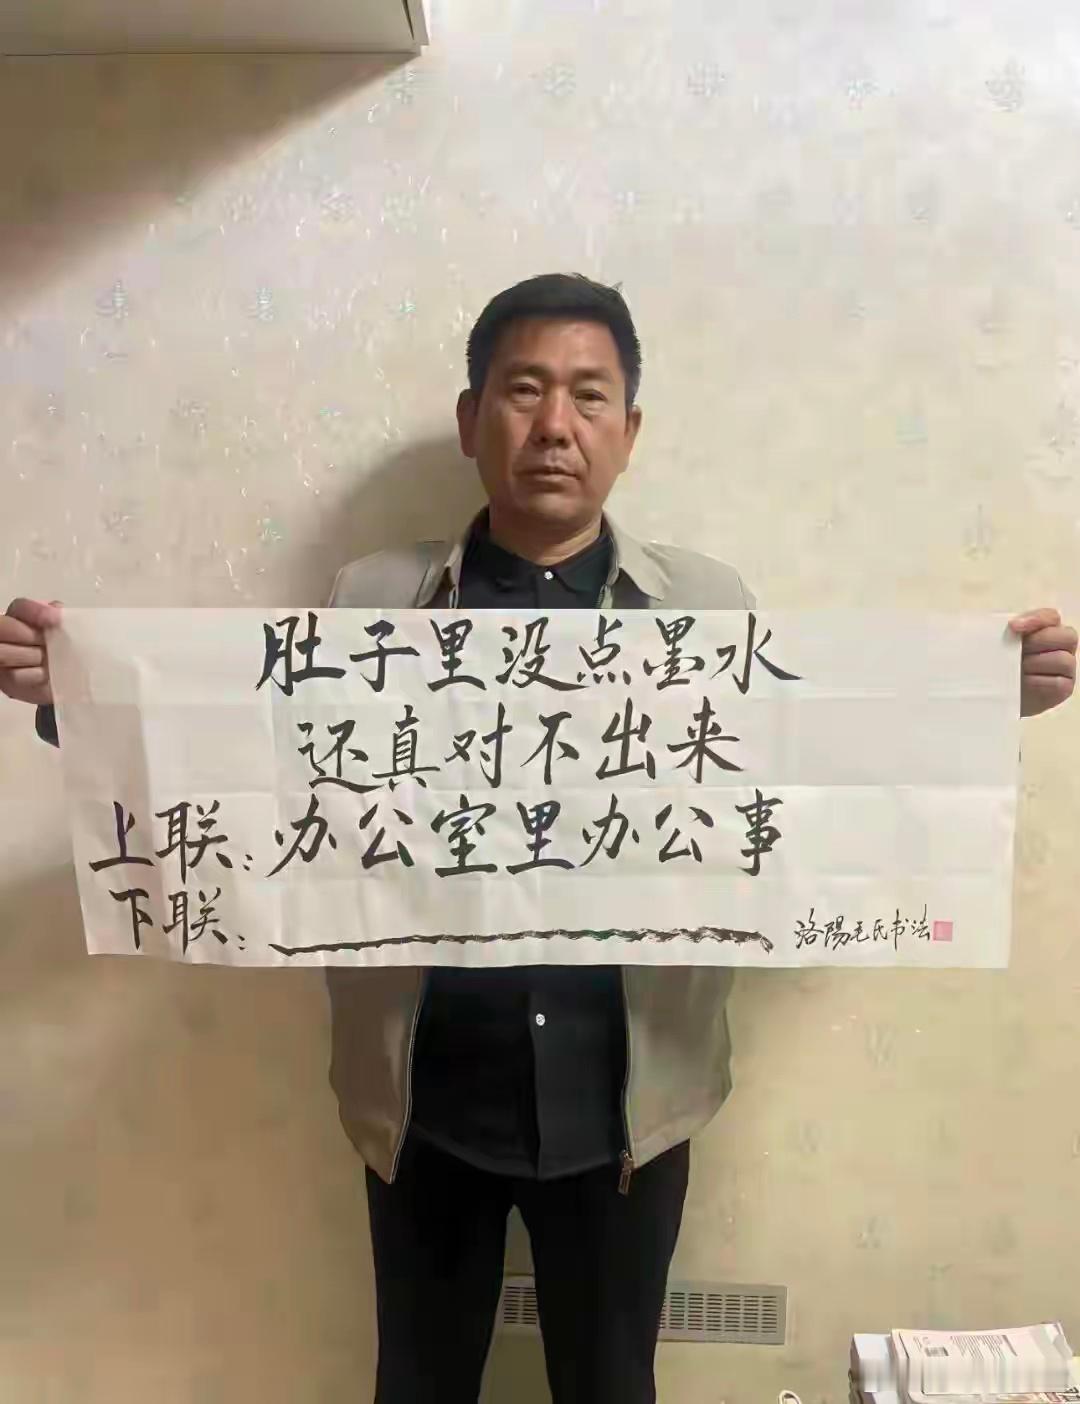 肚子里没点墨水
还真对不出来
上联：办公室里办公事
下联：
洛陽毛氏书法